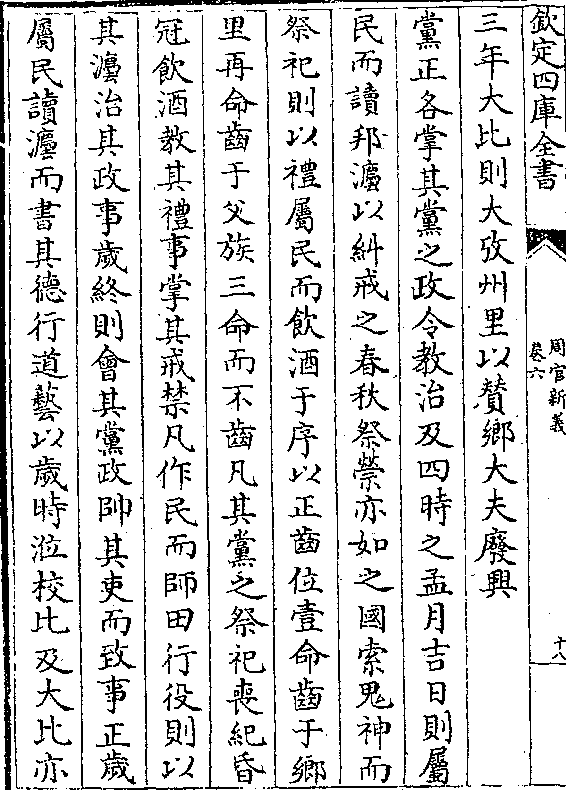 欽定四庫全書
周官新義
卷六
十八
三年大比則大攷州里以贊鄉大夫廢興
黨正各掌其黨之政令教治及四時之孟月吉日則屬
民而讀邦灋以糾戒之春秋祭禜亦如之國索鬼神而
祭祀則以禮屬民而飲酒于序以正齒位壹命齒于鄉
里再命齒于父族三命而不齒凡其黨之祭祀喪紀昏
冠飲酒教其禮事掌其戒禁凡作民而師田行役則以
其灋治其政事歲終則會其黨政帥其吏而致事正歲
屬民讀灋而書其德行道藝以歲時涖校比及大比亦